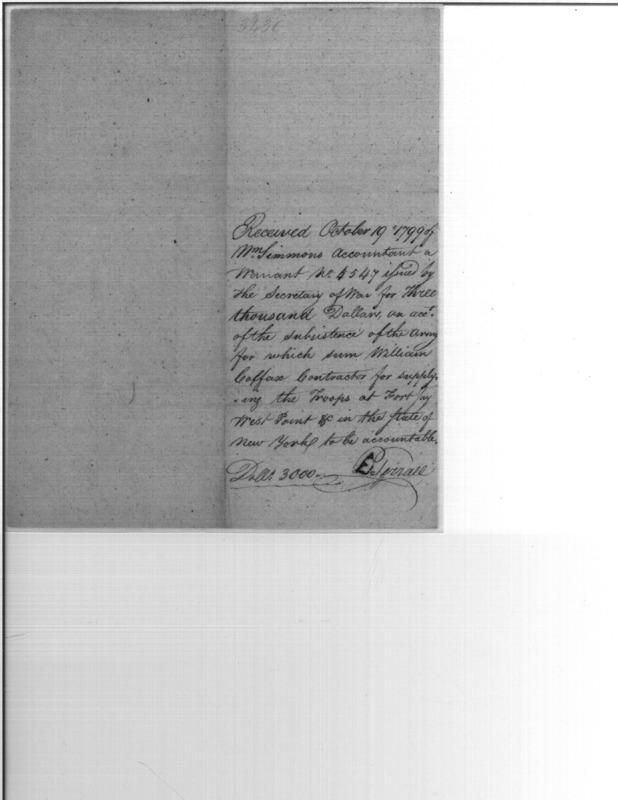 Received October 19th 1799 of
Wm Simmons Accountant a
Warrant No. 4547 issued by
the Secretary of War for Three
thousand Dollars, on acct.
of the subsistence of the Army
for which sum William
Colfax Contractor for supply-
-ing the Troops at Fort Jay
West Point &c in the State of
New York, to be accountable.
Dolls 3000